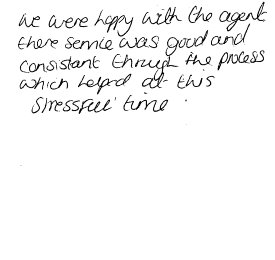 we were happy with the agent
there service was good and
consistant through the process
which helped at this
stressfull time .